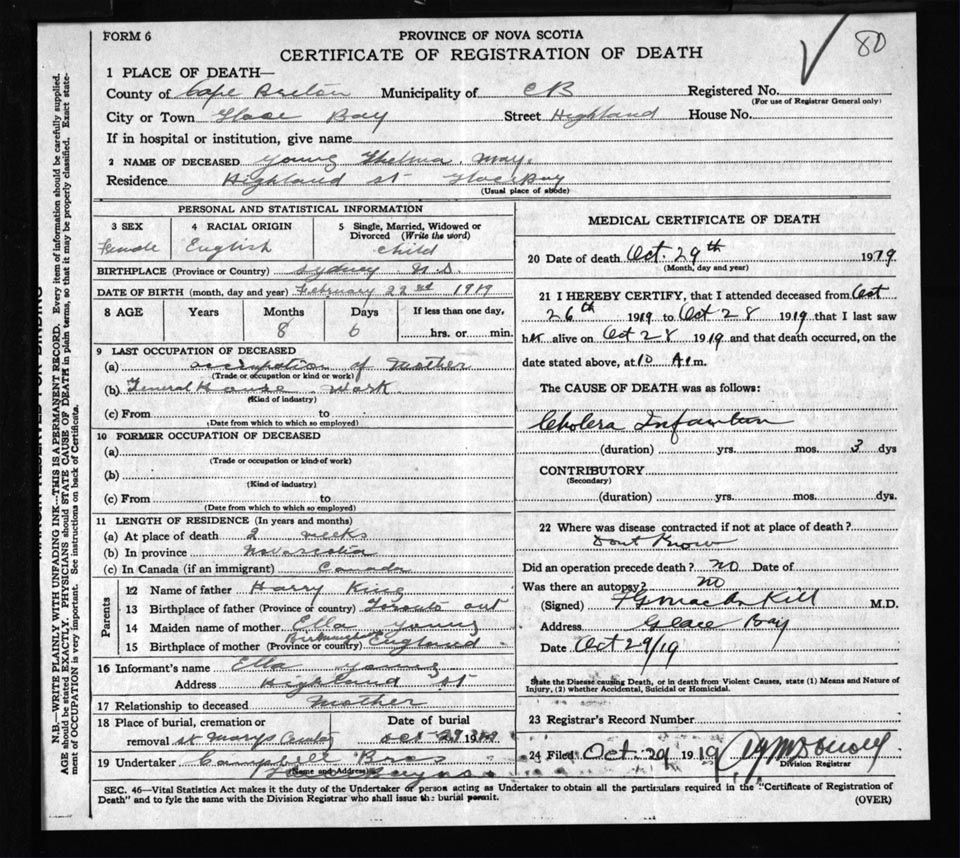 FORM 6
PROVINCE OF NOVA SCOTIA
CERTIFICATE OF REGISTRATION OF DEATH
80
1 PLACE OF DEATH—
County of Cape Breton Municipality of CB Registered No.
(For use of Registrar General only)
City or Town Glace Bay Street Highland House No.
If in hospital or institution, give name
2 NAME OF DECEASED Young Thelma May.
Residence Highland St Glace Bay
(Usual place of abode)
PERSONAL AND STATISTICAL INFORMATION
3 SEX 4 RACIAL ORIGIN 5 Single, Married, Widowed or Divorced (Write the word)
Female English Child
BIRTHPLACE (Province or Country) Sydney N.S.
DATE OF BIRTH (month, day and year) February 22nd 1919
8 AGE Years Months Days If less than one day,
8 6 hrs. or min.
9 LAST OCCUPATION OF DECEASED
(a) occupation of Mother
(Trade or occupation or kind of work)
(b) General House Work
(Kind of industry)
(c) From to
(Date from which to which so employed)
10 FORMER OCCUPATION OF DECEASED
(a)
(Trade or occupation or kind of work)
(b)
(Kind of industry)
(c) From to
(Date from which to which so employed)
11 LENGTH OF RESIDENCE (In years and months)
(a) At place of death 2 weeks
(b) In province Nova Scotia
(c) In Canada (if an immigrant) Canada
Parents
12 Name of father Harry King
13 Birthplace of father (Province or country) Toronto Ont
14 Maiden name of mother Ella Young
15 Birthplace of mother (Province or country) England
16 Informant's name Ella Young
Address Highland St
17 Relationship to deceased Mother
18 Place of burial, cremation or removal St Marys Date of burial Oct 29
19 Undertaker Campbell Bros
(Name and Address)
MEDICAL CERTIFICATE OF DEATH
20 Date of death Oct. 29th 1919
(Month, day and year)
21 I HEREBY CERTIFY, that I attended deceased from Oct
26th 1919 to Oct 28 1919 that I last saw
her alive on Oct 28 1919 and that death occurred, on the
date stated above, at 10 A.m.
The CAUSE OF DEATH was as follows:
Cholera Infantum
(duration) yrs. mos. 3 dys
CONTRIBUTORY
(Secondary)
(duration) yrs. mos. dys.
22 Where was disease contracted if not at place of death?
Dont Know
Did an operation precede death? No Date of
Was there an autopsy? No
(Signed) M.D.
Address Glace Bay
Date Oct 29/19
State the Disease causing Death, or in death from Violent Causes, state (1) Means and Nature of
Injury, (2) whether Accidental, Suicidal or Homicidal.
23 Registrar's Record Number
24 Filed Oct. 29 1919
Division Registrar
SEC. 46—Vital Statistics Act makes it the duty of the Undertaker or person acting as Undertaker to obtain all the particulars required in the "Certificate of Registration of
Death" and to fyle the same with the Division Registrar who shall issue the burial permit. (OVER)
N.B.—WRITE PLAINLY WITH UNFADING INK—THIS IS A PERMANENT RECORD. Every item of information should be carefully supplied.
AGE should be stated EXACTLY. PHYSICIANS should STATE CAUSE OF DEATH in plain terms, so that it may be properly classified. Exact statement
of OCCUPATION is very important. See instructions on back of Certificate.